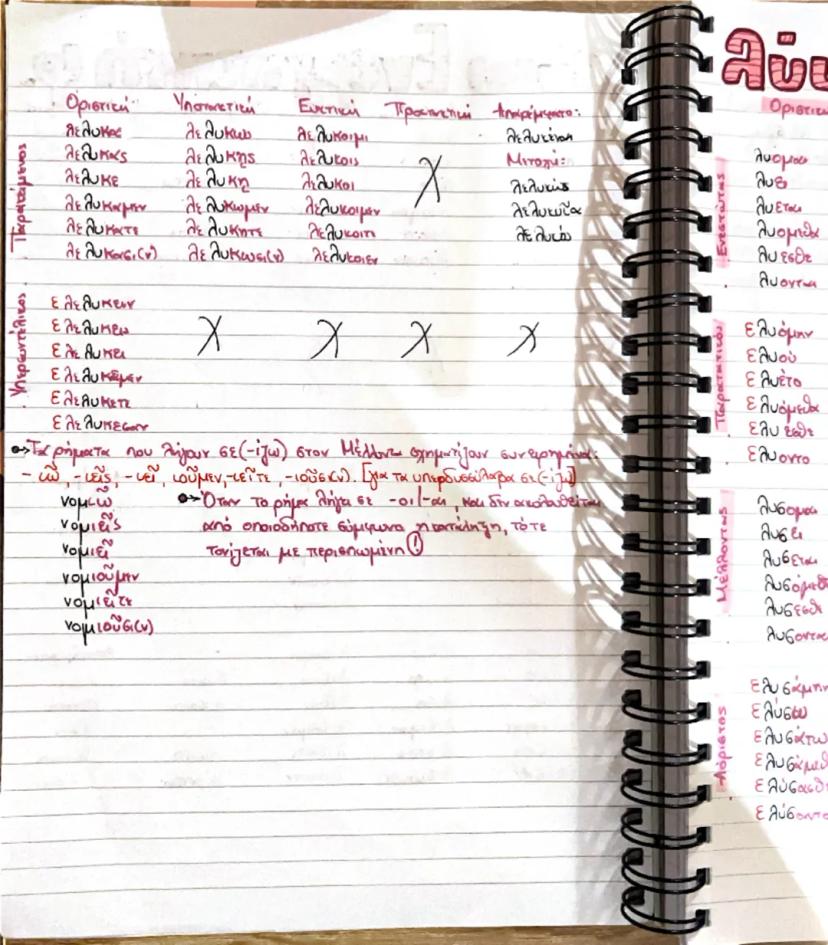 Οριστική Υποτακτική Ευκτική Προστακτική Απαρέμφατο:
λελυκα λελυκω λελυκοιμι λελυκέναι
λελυκας λελυκῃς λελυκοις Μετοχή:
λελυκε λελυκῃ λελυκοι Χ λελυκώς
λελυκαμεν λελυκωμεν λελυκοιμεν λελυκυῖα
λελυκατε λελυκητε λελυκοιτε λελυκός
λελυκασι(ν) λελυκωσι(ν) λελυκοιεν
Παρακείμενος
Υπερσυντέλικος
ελελυκειν
ελελυκεις Χ Χ Χ Χ
ελελυκει
ελελυκεμεν
ελελυκετε
ελελυκεσαν
Τα ρήματα που λήγουν σε (-ίζω) στον Μέλλοντα σχηματίζουν συνηρημένα:
-ιῶ, -ιεῖς, -ιεῖ, ιοῦμεν, -ιεῖτε, -ιοῦσι(ν). [για τα υπερδυσύλλαβα σε (-ίζω)]
νομιῶ
νομιεῖς
νομιεῖ
νομιοῦμεν
νομιεῖτε
νομιοῦσι(ν)
Όταν το ρήμα λήγει σε -οι/-αι, και δεν ακολουθείται
από οποιοδήποτε σύμφωνο η κατάληξη, τότε
τονίζεται με περισπωμένη!
λύω
Οριστικ
Ενεστώτας
λυομαι
λυει
λυεται
λυομεθα
λυεσθε
λυονται
Παρατατικός
ελυόμην
ελυού
ελυέτο
ελυόμεθα
ελυεσθε
ελυοντο
Μέλλοντας
λυσομαι
λυσει
λυσεται
λυσόμεθ
λυσεσθε
λυσοντα
Αόριστος
ελυσάμην
ελύσω
ελυσάτω
ελυσάμεθ
ελύσασθ
ελύσαντο